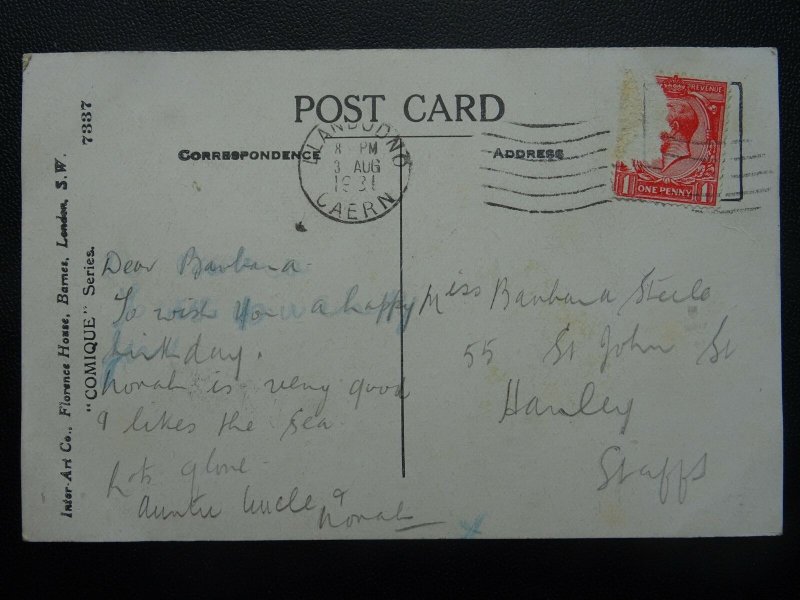 POST CARD
CORRESPONDENCE
ADDRESS
LLANDUDNO
8 - PM
3 AUG
1931
CAERN
REVENUE
1 ONE PENNY 1
Inter-Art Co., Florence House, Barnes, London, S.W.
"COMIQUE" Series. 7337
Dear Barbara.
To wish you a happy
birthday.
Norah is very good
& likes the sea
Lots of love
Auntie Uncle &
Norah
Miss Barbara Steele
55 St John St
Hanley
Staffs